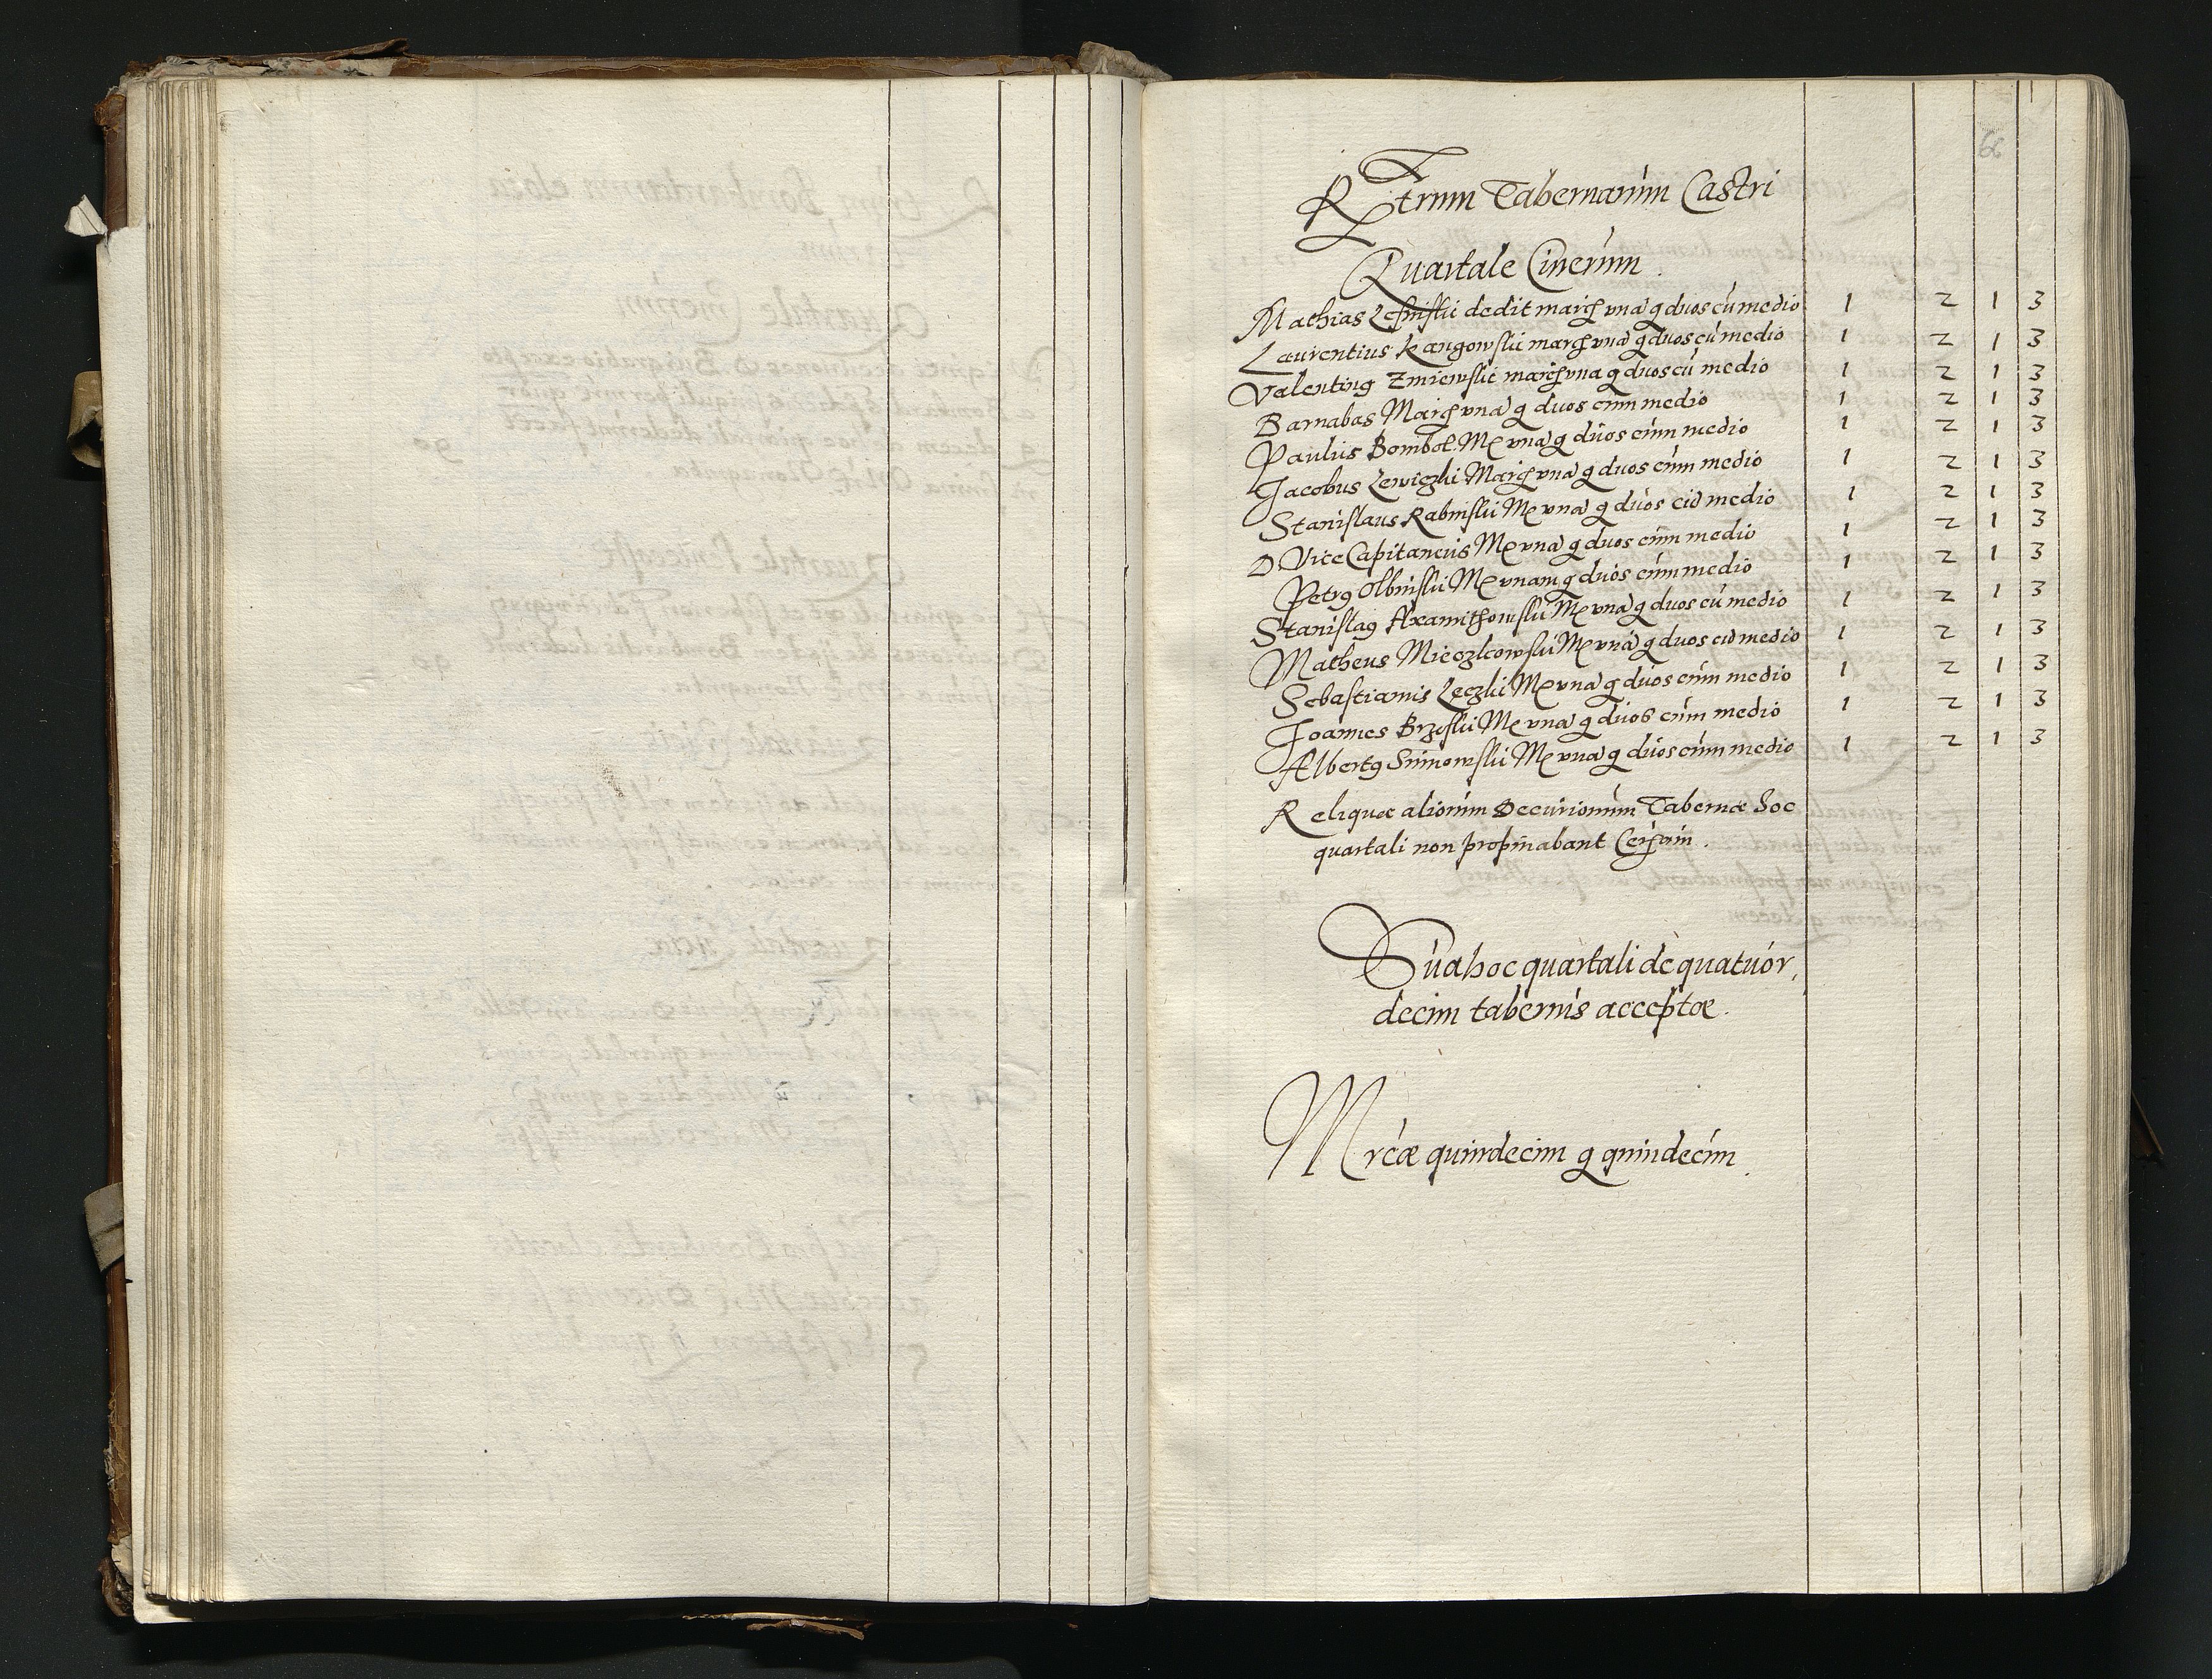 66
Rtrum Tabernarum Castri
Quartale Cinerum.
Mathias dedit març vna g duos cu medio 1 2 1 3
Laurentius Kangowski març vna g duos cu medio 1 2 1 3
Valenting Zmiewski març vna g duos cu medio 1 2 1 3
Barnabas Març vna g duos cum medio 1 2 1 3
Paulus Bombol Mç vna g duos cum medio 1 2 1 3
Jacobus Lewiczki Març vna g duos cum medio 1 2 1 3
Stanislaus Rabinski Mç vna g duos cu medio 1 2 1 3
D Vice Capitaneus Mç vna g duos cum medio 1 2 1 3
Petrg Olbinski Mç vnam g duos cum medio 1 2 1 3
Stanislag Axamithowski Mç vna g duos cu medio 1 2 1 3
Matheus Mieczkowski Mç vna g duos cu medio 1 2 1 3
Sebastianus Leczki Mç vna g duos cum medio 1 2 1 3
Joannes Brzeski Mç vna g duos cum medio 1 2 1 3
Albertg Simowski Mç vna g duos cum medio 1 2 1 3
Reliquæ aliorum Decurionum Tabernæ hoc
quartali non propinabant
Sua hoc quartali de quatuor,
decim tabernis acceptæ.
Mrcæ quindecim g quindecim.